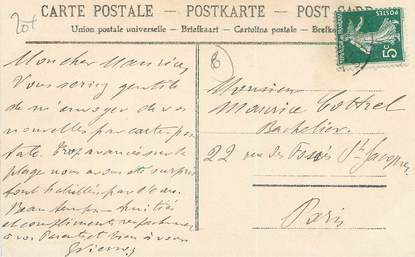 20f
CARTE POSTALE — POSTKARTE — POST CARD
Union postale universelle — Briefkaart — Cartolina postale — Briefkort
POSTES
5c
8
Mon cher Maurice,
Vous seriez gentil
de m'envoyer de vos
nouvelles par carte pos
tale. Trop avancés sur la
plage nous avons été surpris
par l'eau.
Beau temps - Amitiés
et compliments
à vos Parents et bien à vous
Monsieur
Maurice Cottrel
Bachelier
22 rue des Fossés St Jacques
Paris